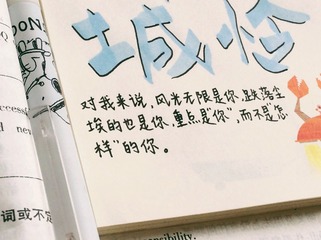 城怜
对我来说，风光无限是你，跌落尘
埃的也是你，重点是“你”，而不是“怎
样”的你。
词或不定